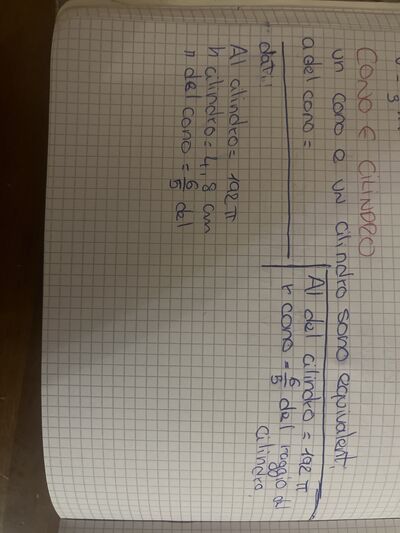 CONO E CILINDRO
un cono e un cilindro sono equivalenti
a del cono =
Al del cilindro = 192 π
r cono = 6/5 del raggio del
cilindro.
dati:
Al cilindro = 192 π
h cilindro = 4,8 cm
r del cono = 6/5 del